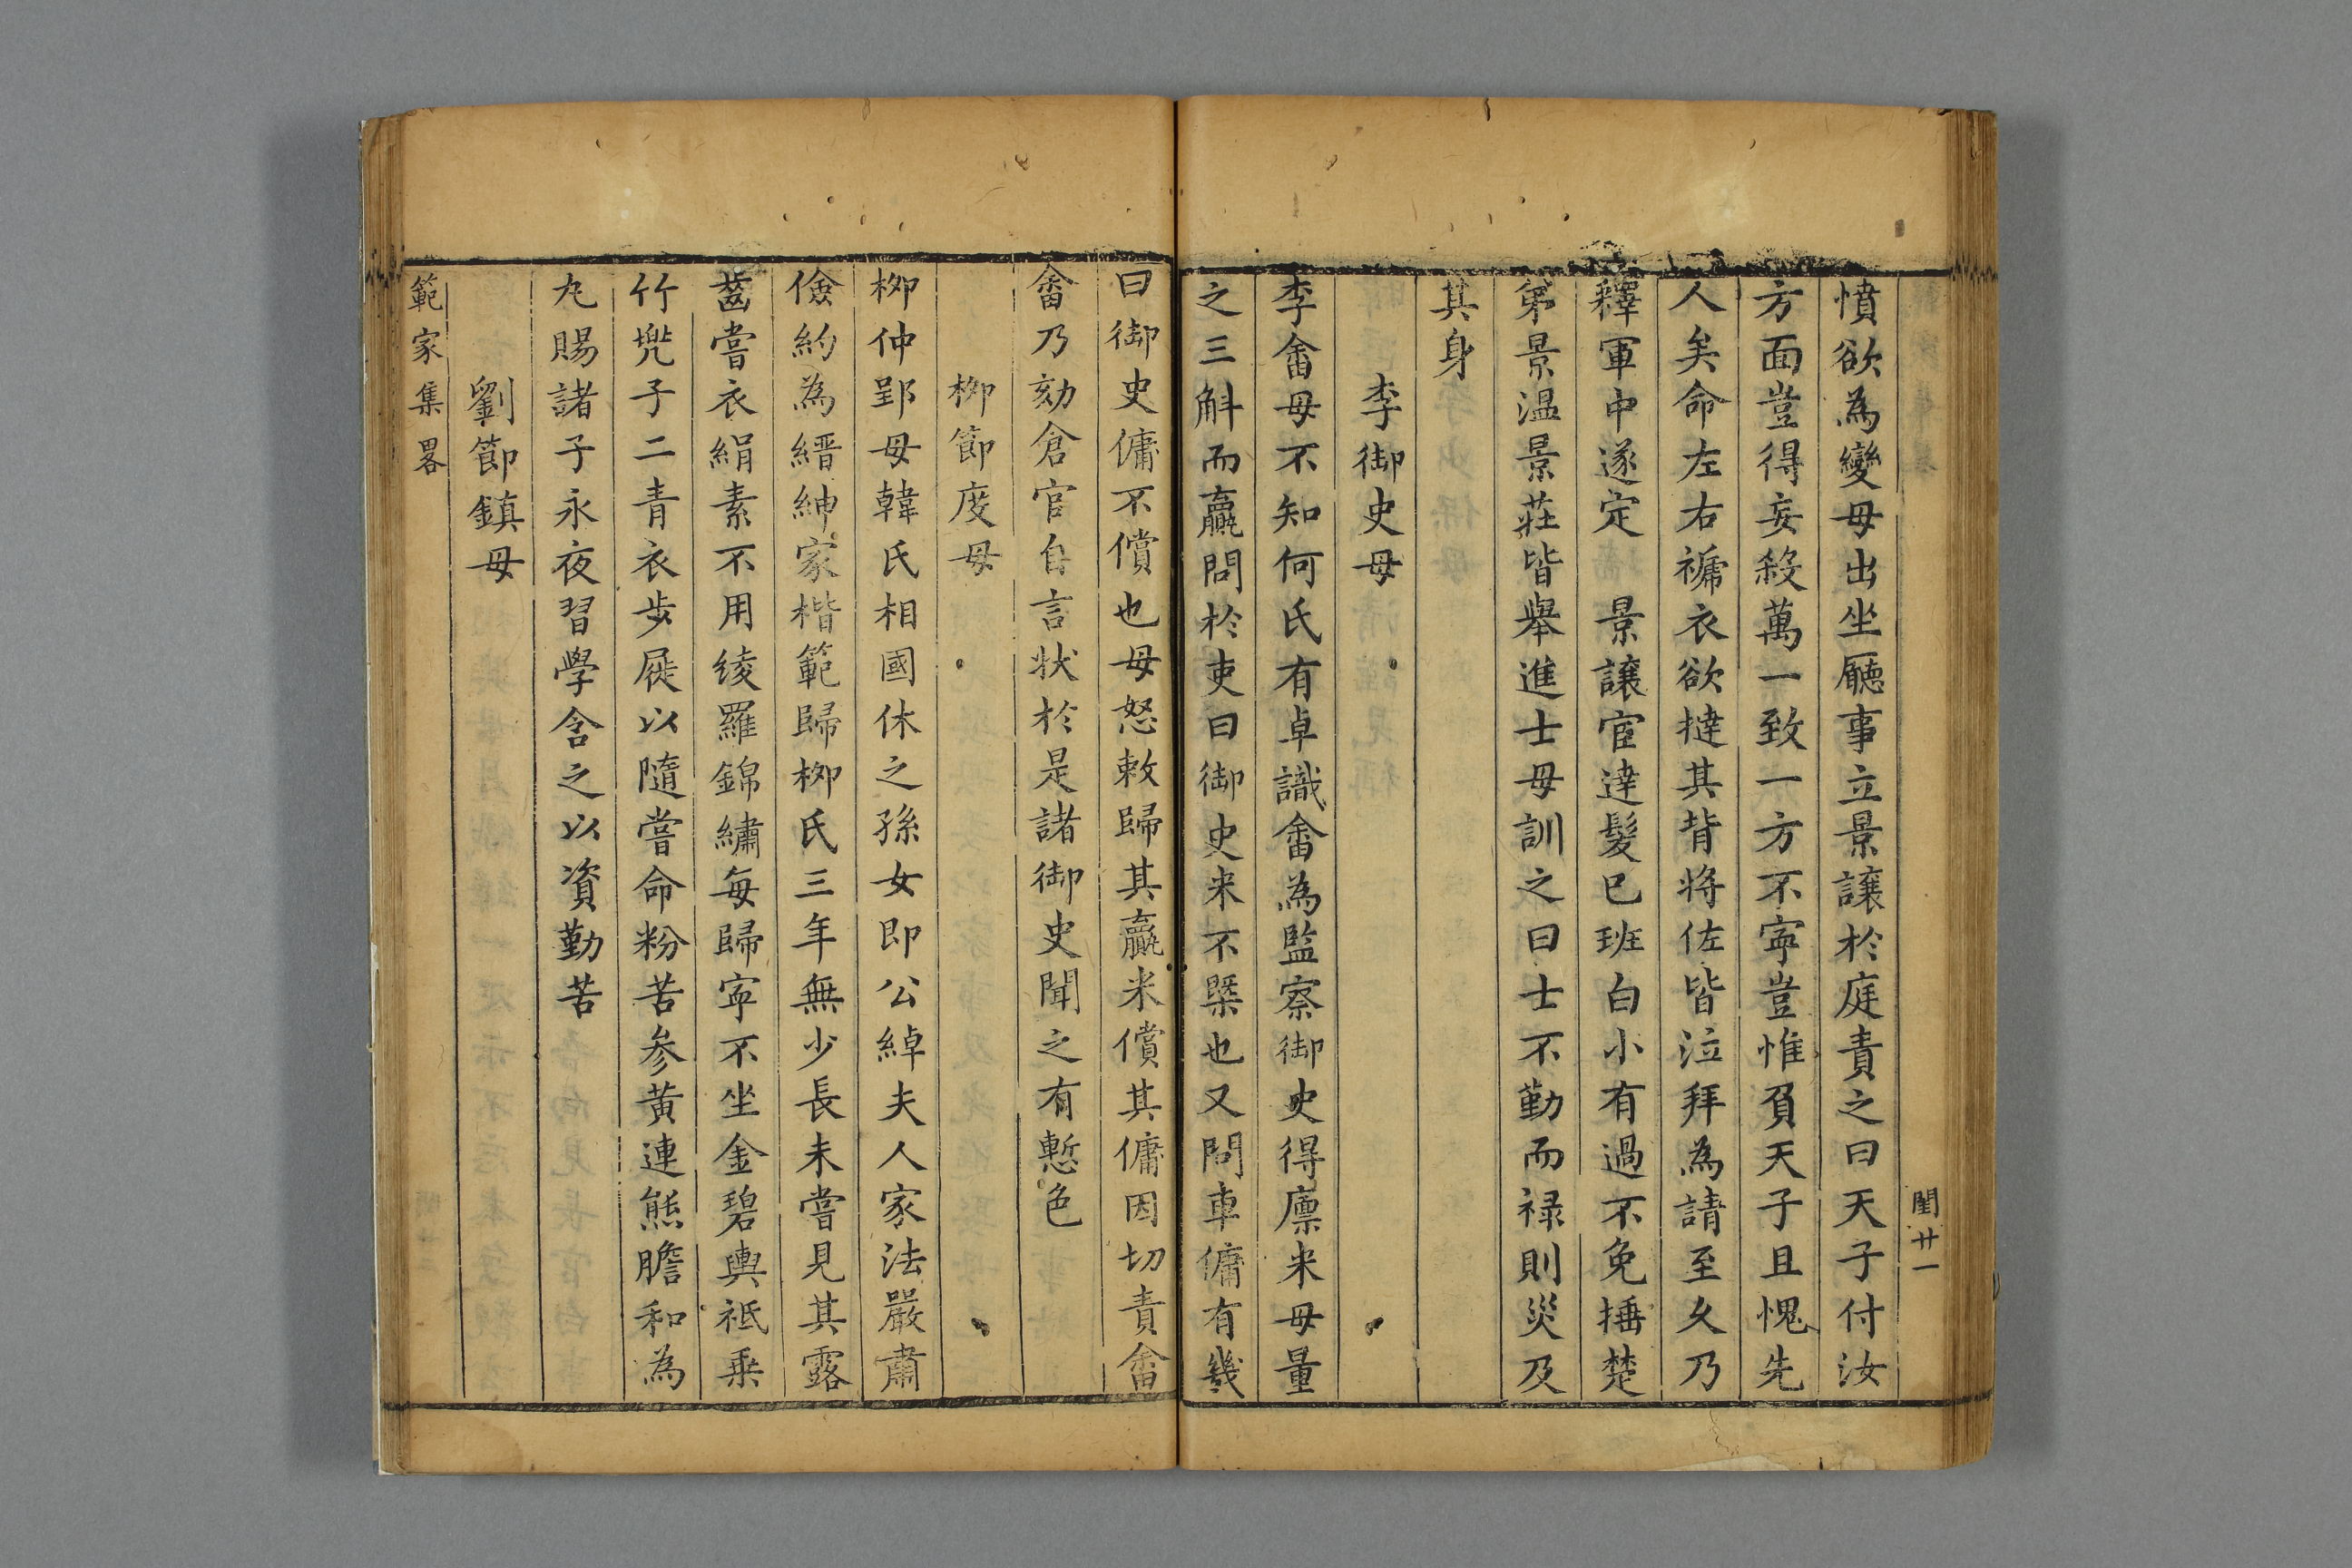 閨廿一
憤欲為變母出坐廳事立景讓於庭責之曰天子付汝
方面豈得妄殺萬一致一方不寧豈惟負天子且愧先
人矣命左右褫衣欲撻其背將佐皆泣拜為請至久乃
釋軍中遂定 景讓宦達髮已班白小有過不免捶楚
第景溫景莊皆舉進士母訓之曰士不勤而祿則災及
其身
李御史母
李畬母不知何氏有卓識畬為監察御史得廩米母量
之三斛而贏問於吏曰御史米不槩也又問車傭有幾
曰御史傭不償也母怒敕歸其贏米償其傭因切責畬
畬乃劾倉官自言狀於是諸御史聞之有慙色
柳節度母
柳仲郢母韓氏相國休之孫女即公綽夫人家法嚴肅
儉約為縉紳家楷範歸柳氏三年無少長未嘗見其露
齒嘗衣絹素不用綾羅錦繡每歸寧不坐金碧輿祗乘
竹兠子二青衣步屣以隨嘗命粉苦參黃連熊膽和為
丸賜諸子永夜習學含之以資勤苦
劉節鎮母
範家集畧